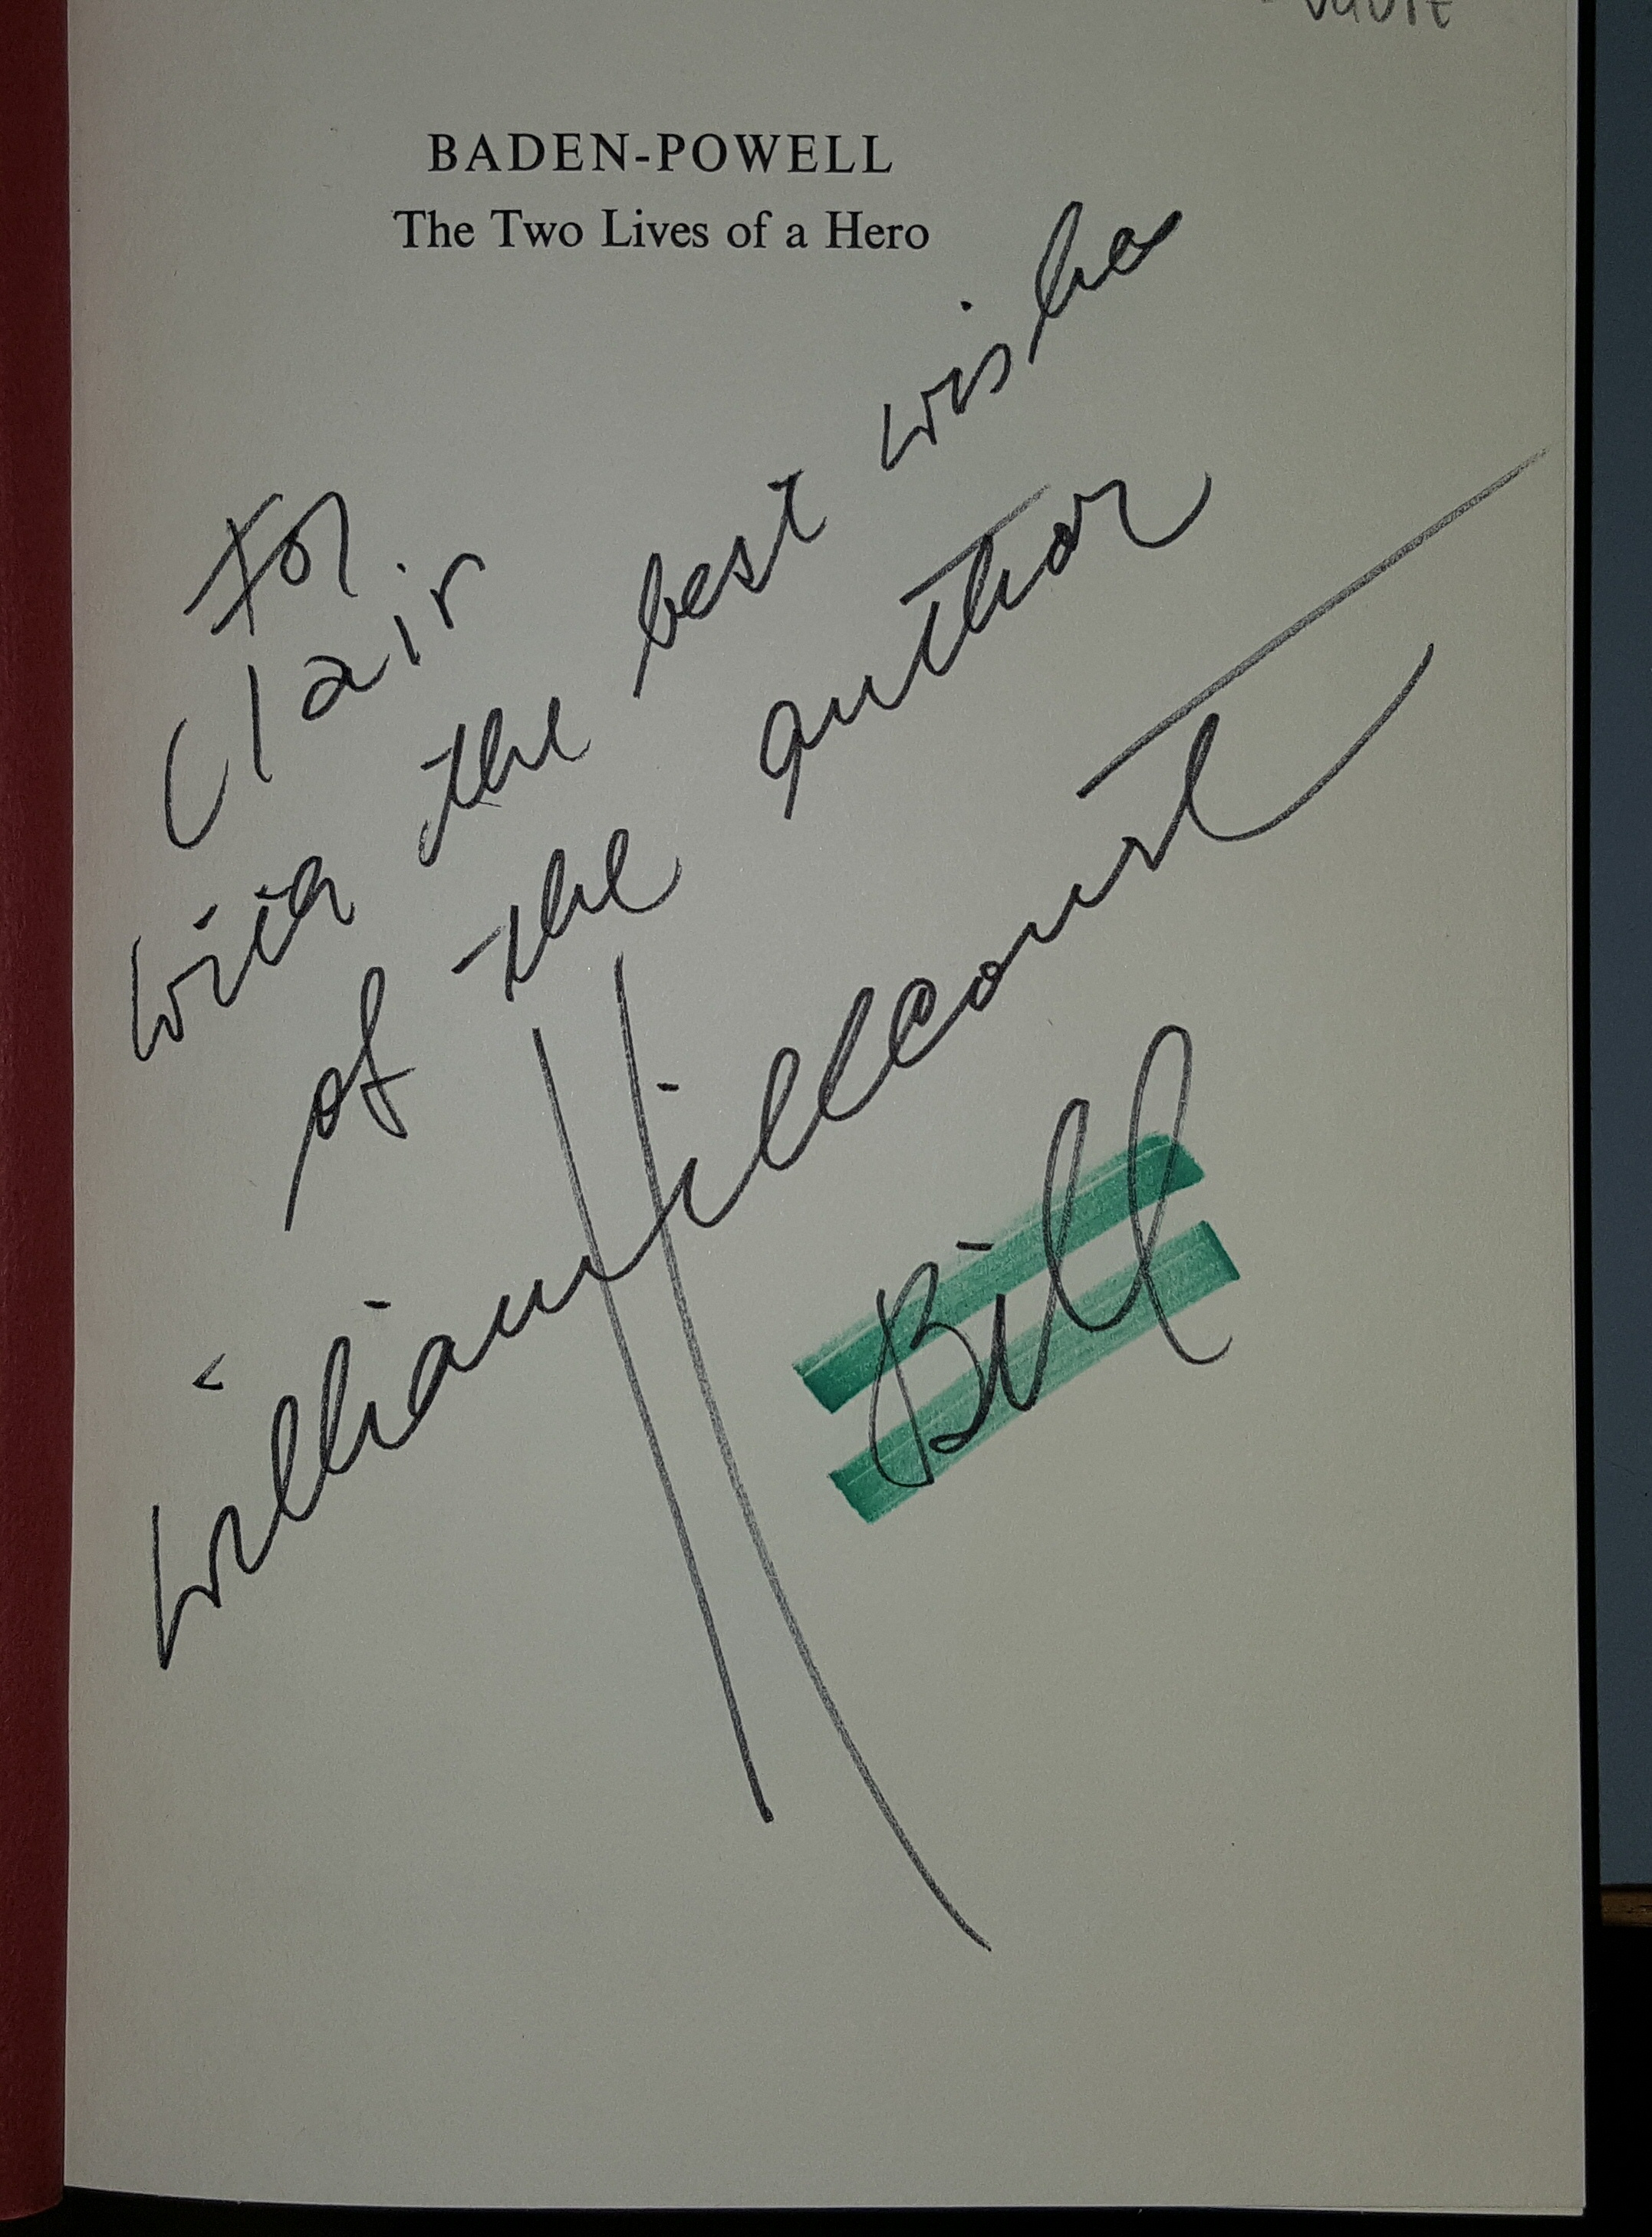 BADEN-POWELL
The Two Lives of a Hero
For
Clair
with the best wishes
of the author
William Hillcourt
Bill